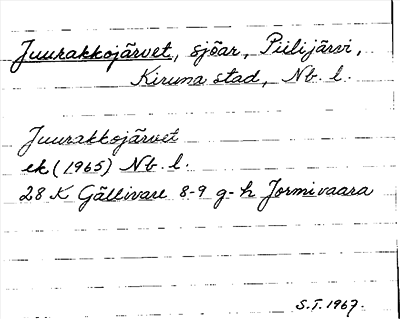 Juurakkojärvet, sjöar, Piilijärvi,
Kiruna stad, Nb. l.
Juurakkojärvet
ek (1965) Nb. l.
28 K Gällivare 8-9 g-h Jormivaara
S.T. 1967.